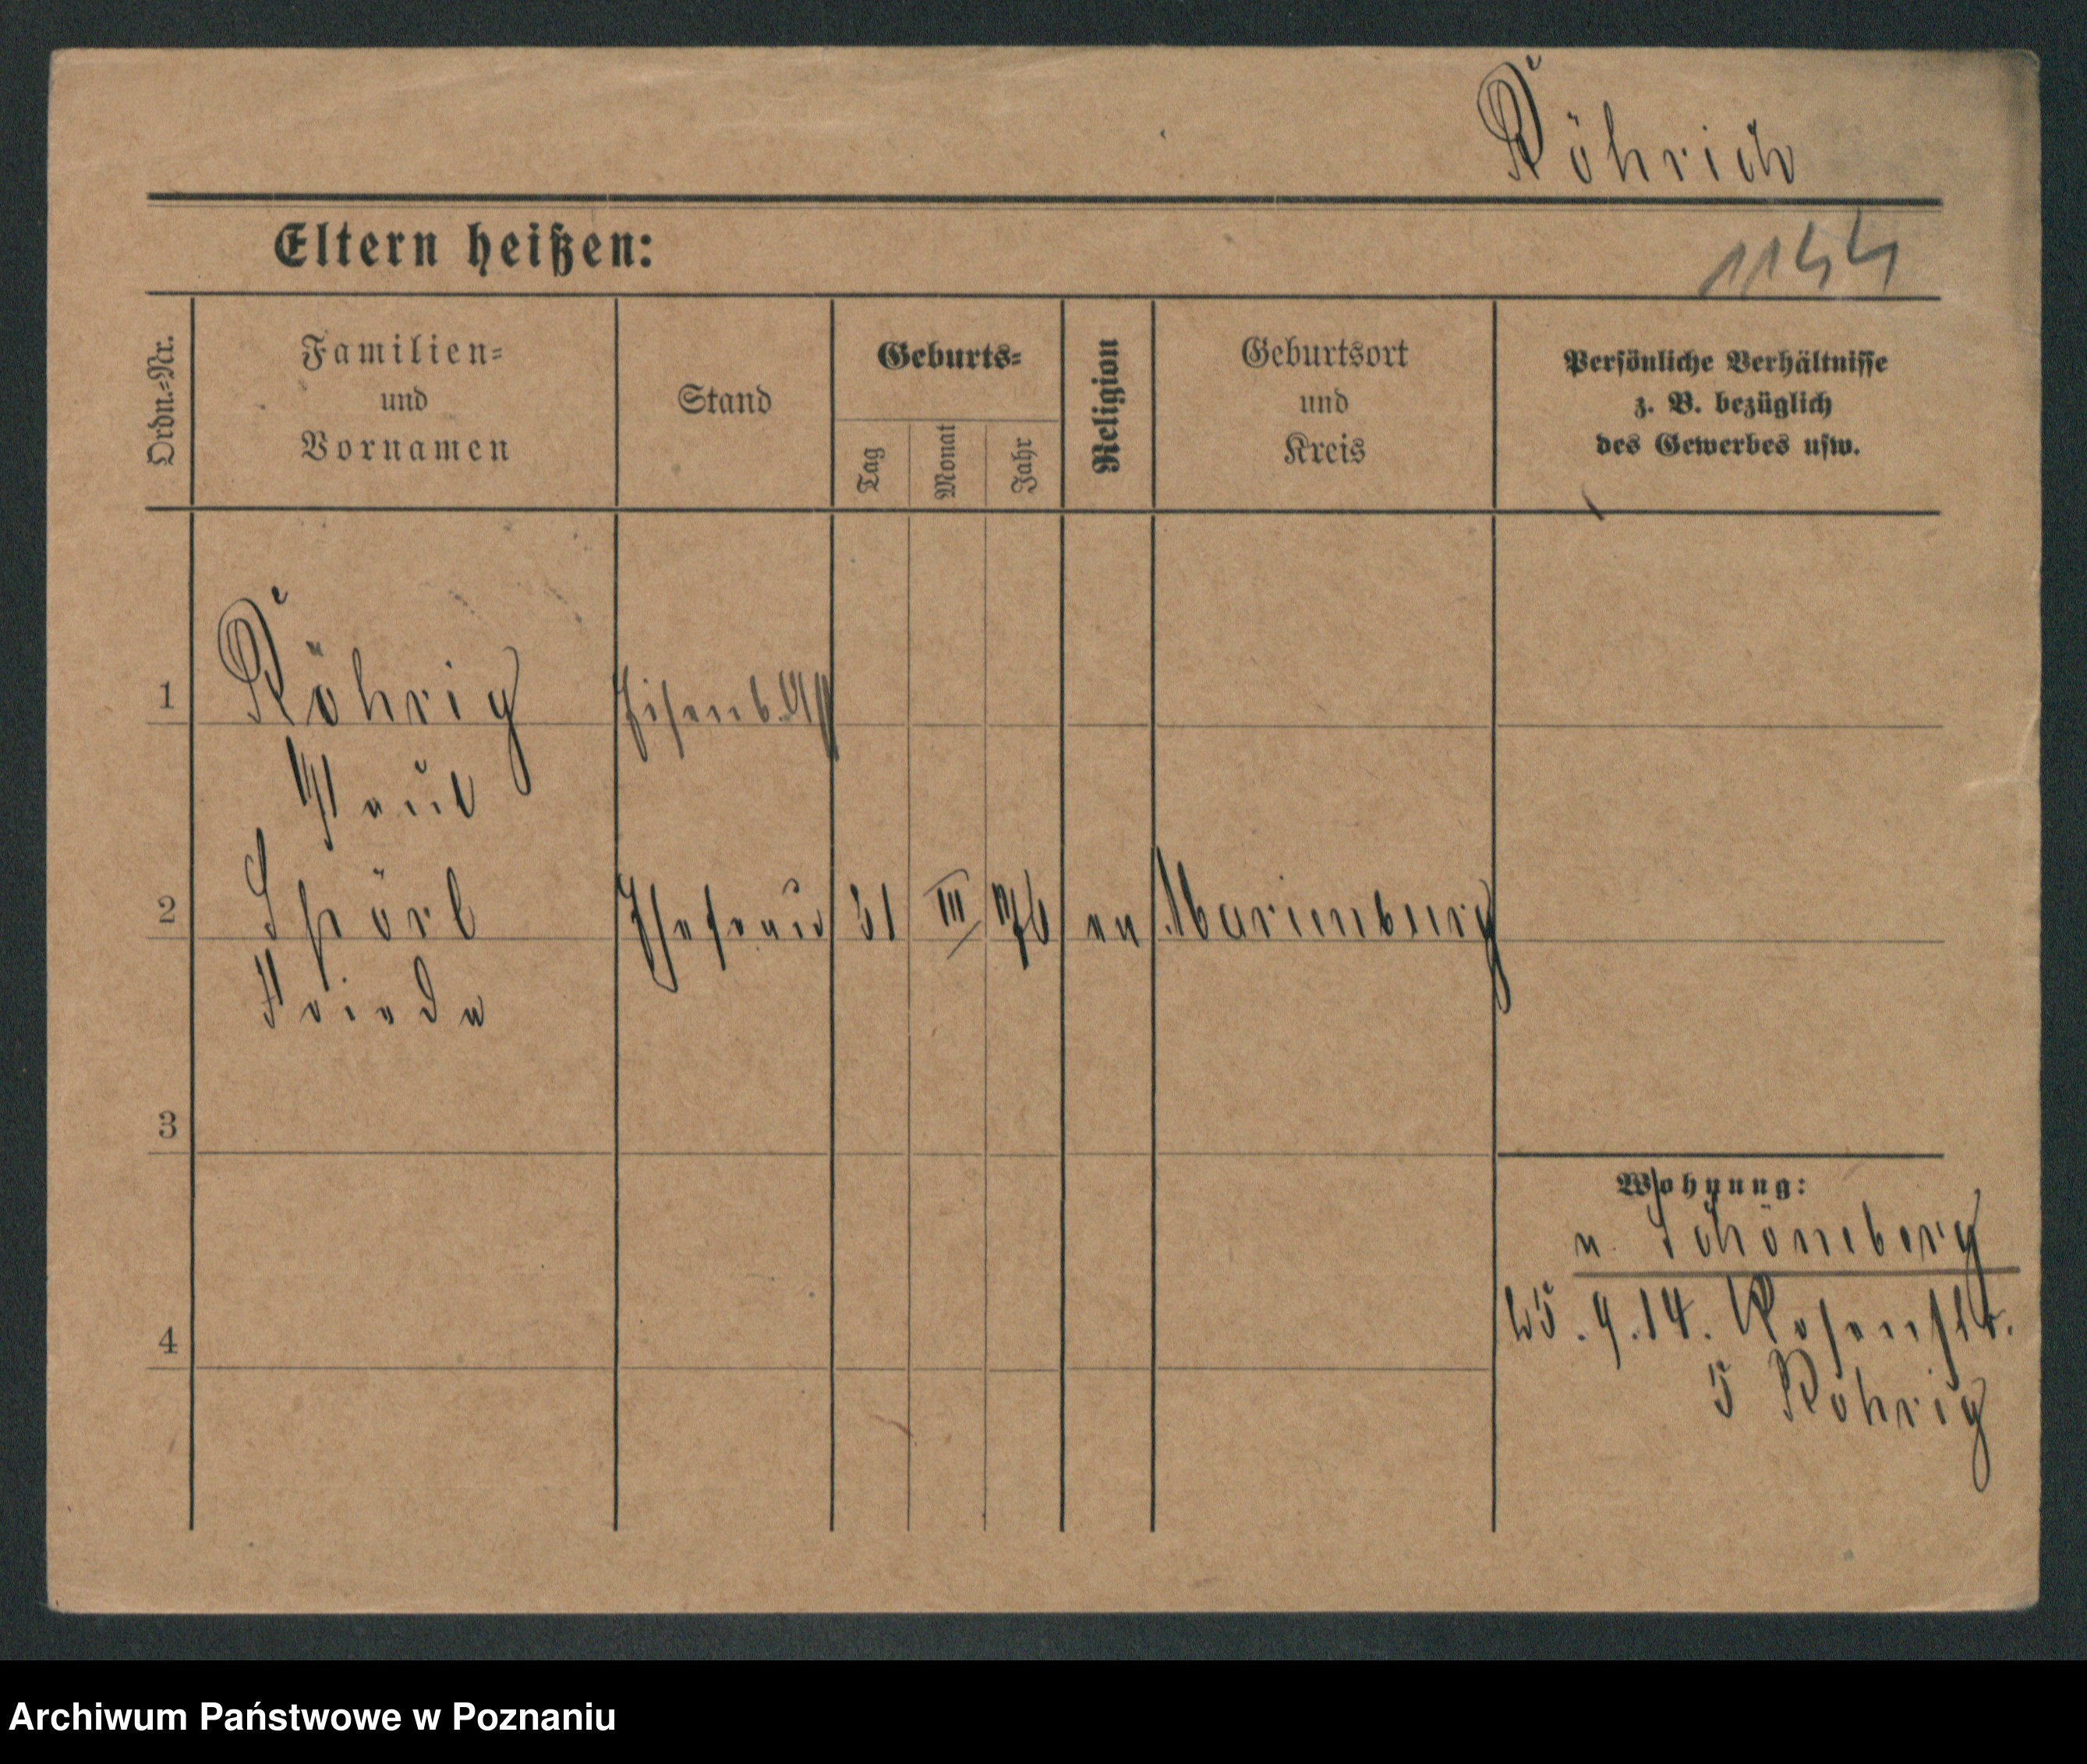 Röhrich
Eltern heißen:
1144
Ordn.=Nr.
Familien=
und
Vornamen
Stand
Geburts=
Tag
Monat
Jahr
Religion
Geburtsort
und
Kreis
Persönliche Verhältnisse
z. B. bezüglich
des Gewerbes usw.
1 Röhrig Eisenb.
Paul
2 Spörl Ehefrau 31 III 76 Marienburg
Frieda
3
Wohnung:
n. Schöneberg
4
9.14. Rosenstr.
5 Röhrig
Archiwum Państwowe w Poznaniu